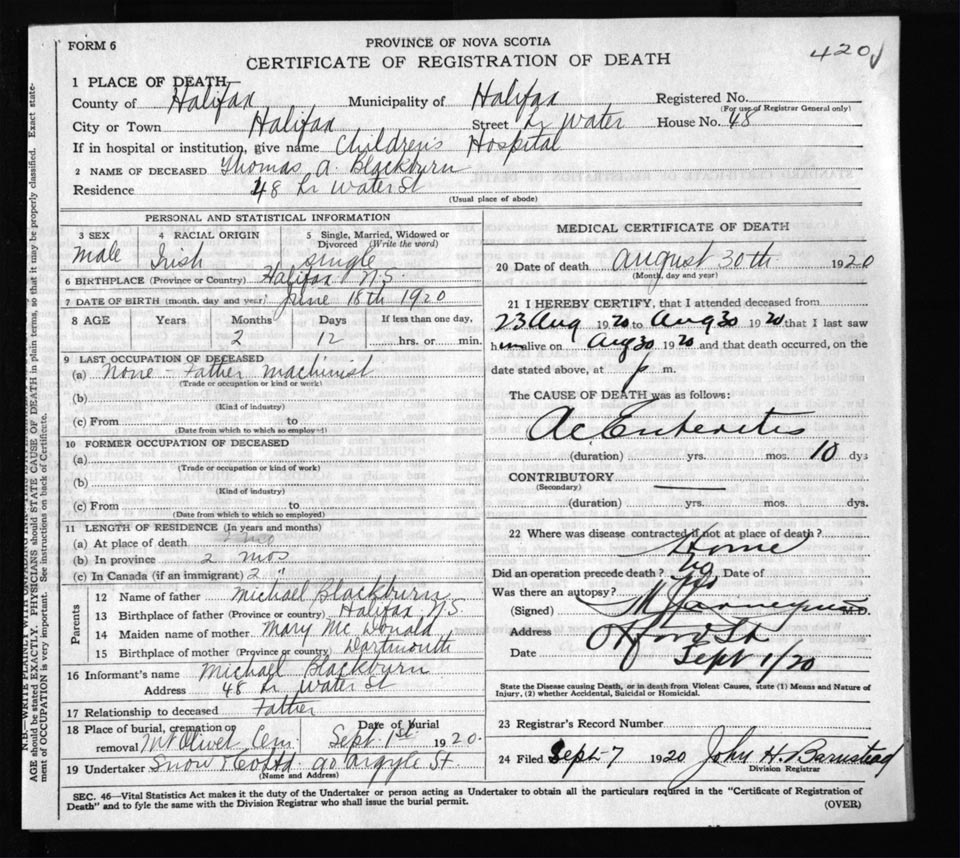 FORM 6
PROVINCE OF NOVA SCOTIA
420
CERTIFICATE OF REGISTRATION OF DEATH
1 PLACE OF DEATH
County of Halifax Municipality of Halifax Registered No.
(For use of Registrar General only)
City or Town Halifax Street Lr Water House No. 48
If in hospital or institution, give name Children's Hospital
2 NAME OF DECEASED Thomas A. Blackburn
Residence 48 Lr Water St
(Usual place of abode)
PERSONAL AND STATISTICAL INFORMATION
3 SEX 4 RACIAL ORIGIN 5 Single, Married, Widowed or Divorced (Write the word)
Male Irish Single
6 BIRTHPLACE (Province or Country) Halifax N.S.
7 DATE OF BIRTH (month, day and year) June 18th 1920
8 AGE Years Months Days If less than one day,
2 12 hrs. or min.
9 LAST OCCUPATION OF DECEASED
(a) None - Father machinist
(Trade or occupation or kind of work)
(b)
(Kind of industry)
(c) From to
(Date from which to which so employed)
10 FORMER OCCUPATION OF DECEASED
(a)
(Trade or occupation or kind of work)
(b)
(Kind of industry)
(c) From to
(Date from which to which so employed)
11 LENGTH OF RESIDENCE (In years and months)
(a) At place of death 2 mo
(b) In province 2 mos
(c) In Canada (if an immigrant) 2 "
Parents
12 Name of father Michael Blackburn
13 Birthplace of father (Province or country) Halifax, N.S
14 Maiden name of mother Mary McDonald
15 Birthplace of mother (Province or country) Dartmouth
16 Informant's name Michael Blackburn
Address 48 Lr Water St
17 Relationship to deceased Father
18 Place of burial, cremation or removal Mt Olivet Cem. Date of burial Sept. 1st 1920.
19 Undertaker Snow & Co Ltd 90 Argyle St.
(Name and Address)
MEDICAL CERTIFICATE OF DEATH
20 Date of death August 30th 1920
(Month, day and year)
21 I HEREBY CERTIFY, that I attended deceased from
23 Aug 1920 to Aug 30 1920 that I last saw
him alive on Aug 30 1920 and that death occurred, on the
date stated above, at p m.
The CAUSE OF DEATH was as follows:
Ac. Enteritis
(duration) yrs. mos. 10 dys
CONTRIBUTORY
(Secondary)
(duration) yrs. mos. dys.
22 Where was disease contracted if not at place of death?
Home
Did an operation precede death? No Date of
Was there an autopsy? No
(Signed) M.D.
Address Oxford St
Date Sept 1/20
State the Disease causing Death, or in death from Violent Causes, state (1) Means and Nature of
Injury, (2) whether Accidental, Suicidal or Homicidal.
23 Registrar's Record Number
24 Filed Sept 7 1920 John H. Barnstead
Division Registrar
SEC. 46—Vital Statistics Act makes it duty of the Undertaker or person acting as Undertaker to obtain all the particulars required in the "Certificate of Registration of
Death" and to fyle the same with the Division Registrar who shall issue the burial permit.
(OVER)
AGE should be stated EXACTLY. PHYSICIANS should STATE CAUSE OF DEATH in plain terms, so that it may be properly classified. Exact state-
ment of OCCUPATION is very important. See instructions on back of Certificate.